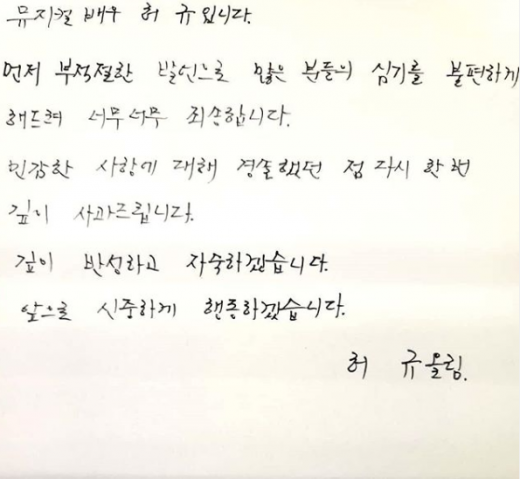 뮤지컬 배우 허 규입니다.
먼저 부적절한 발언으로 많은 분들의 심기를 불편하게
해드려 너무너무 죄송합니다.
민감한 사항에 대해 경솔했던 점 다시 한 번
깊이 사과드립니다.
깊이 반성하고 자숙하겠습니다.
앞으로 신중하게 행동하겠습니다.
허 규 올림.